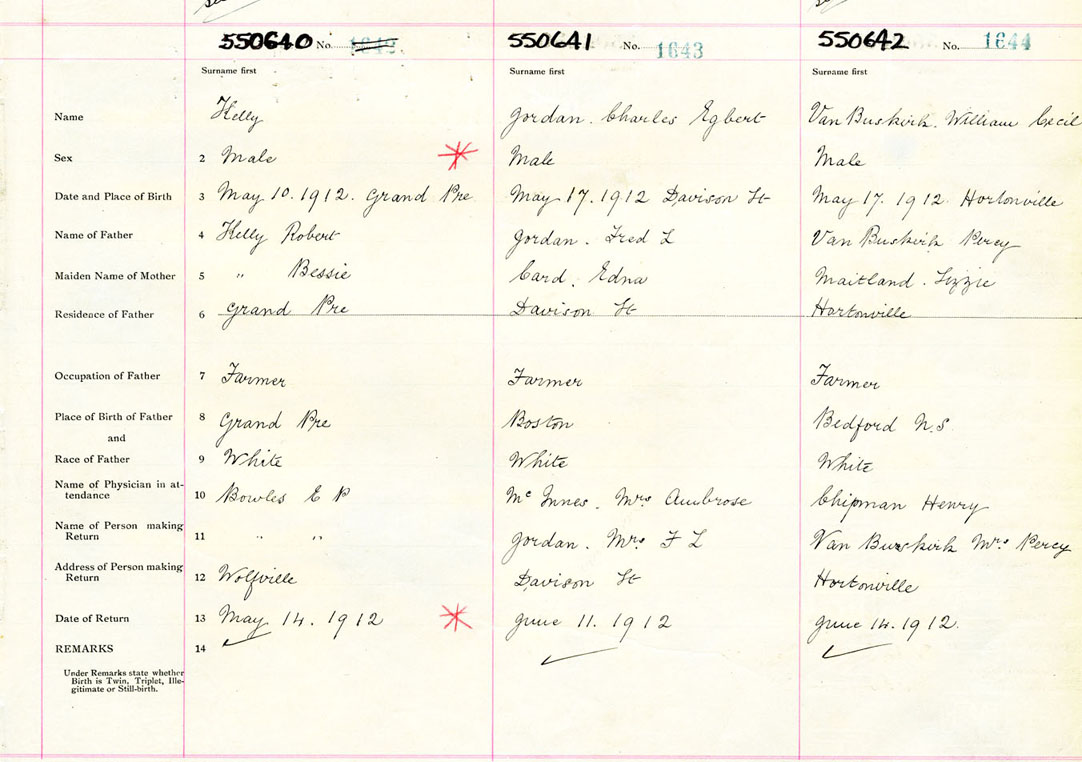 550640 No. 1642 550641 No. 1643 550642 No. 1644
Surname first Surname first Surname first
Name Kelly Jordan. Charles Egbert Van Buskirk. William Cecil
Sex 2 Male Male Male
Date and Place of Birth 3 May 10. 1912. Grand Pre May 17. 1912 Davison St May 17. 1912. Hortonville
Name of Father 4 Kelly Robert Jordan. Fred L Van Buskirk Percy
Maiden Name of Mother 5 " Bessie Card. Edna Maitland. Lizzie
Residence of Father 6 Grand Pre Davison St Hortonville
Occupation of Father 7 Farmer Farmer Farmer
Place of Birth of Father 8 Grand Pre Boston Bedford N.S.
and
Race of Father 9 White White White
Name of Physician in at-
tendance 10 Bowles E P Mc Innes. Mrs Ambrose Chipman Henry
Name of Person making
Return 11 " " Jordan. Mrs F L Van Buskirk Mrs Percy
Address of Person making
Return 12 Wolfville Davison St Hortonville
Date of Return 13 May 14. 1912 June 11. 1912 June 14. 1912.
REMARKS 14
Under Remarks state whether
Birth is Twin, Triplet, Ille-
gitimate or Still-birth.